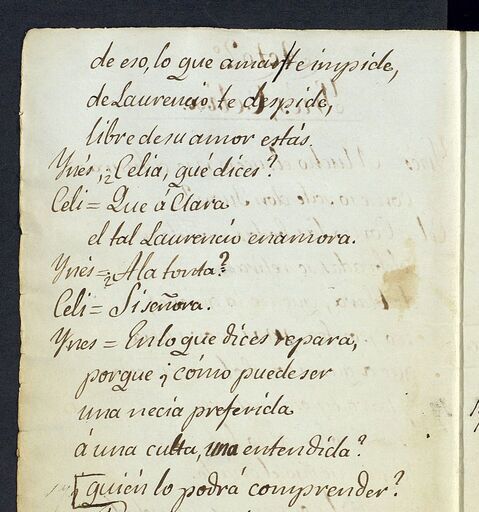 de eso, lo que amarte impide,
de Laurencio te despide,
libre de su amor estás.
Ynés = ¿Celia, qué dices?
Celi = Que á Clara
el tal Laurencio enamora.
Ynés = ¿A la tonta?
Celi = Si señora.
Ynes = En lo que dices repara,
porque ¿cómo puede ser
una necia preferida
á una culta, una entendida?
quién lo podrá comprender?